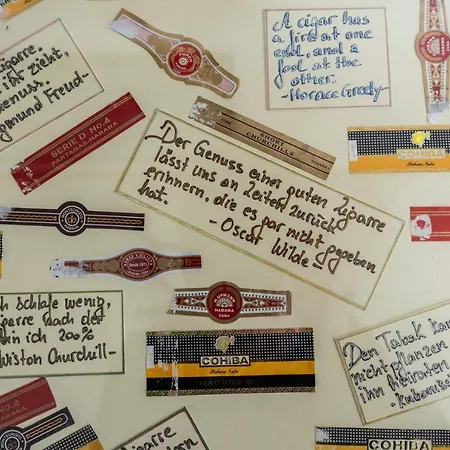 Zigarre,
ihr zieht,
Genuss.
Sigmund Freud-
A cigar has
a fire at one
end, and a
fool at the
other.
-Horace Greely-
SERIE D No.4
PARTAGAS HABANA
SHORT
CHURCHILLS
COHIBA
Habana, Cuba
Der Genuss einer guten Zigarre
lässt uns an Zeiten zurück
erinnern, die es gar nicht gegeben
hat.
- Oscar Wilde -
H.UPMANN
HABANA
CUBA
ch schlafe wenig,
igarre nach der
bin ich 200%
Winston Churchill-
COHIBA
Habana, Cuba
Den Tabak kan
nicht pflanzen
ihn heiraten
- kubanisch
No.4
HABANA
Zigarre
COHIBA
Habana, Cuba